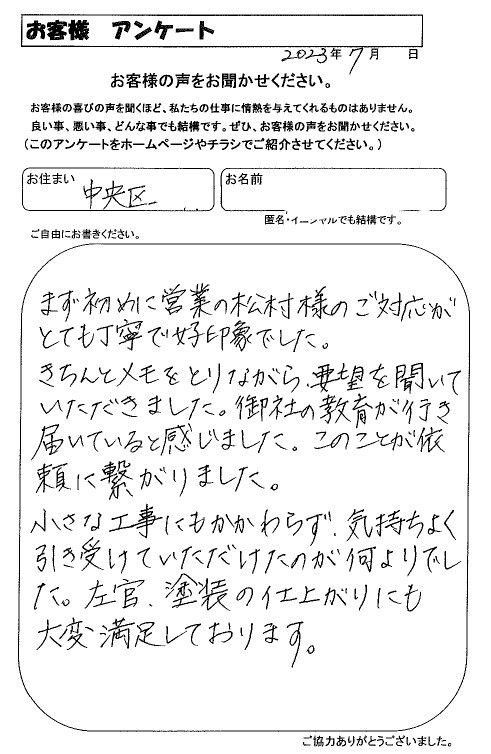 お客様 アンケート
2023年 7月 日
お客様の声をお聞かせください。
お客様の喜びの声を聞くほど、私たちの仕事に情熱を与えてくれるものはありません。
良い事、悪い事、どんな事でも結構です。ぜひ、お客様の声をお聞かせください。
(このアンケートをホームページやチラシでご紹介させてください。)
お住まい 中央区
お名前
匿名・イニシャルでも結構です。
ご自由にお書きください。
まず初めに営業の松村様のご対応が
とても丁寧で好印象でした。
きちんとメモをとりながら、要望を聞いて
いただきました。御社の教育が行き
届いていると感じました。このことが依
頼に繋がりました。
小さな工事にもかかわらず、気持ちよく
引き受けていただけたのが何よりでし
た。左官、塗装の仕上がりにも
大変満足しております。
ご協力ありがとうございました。